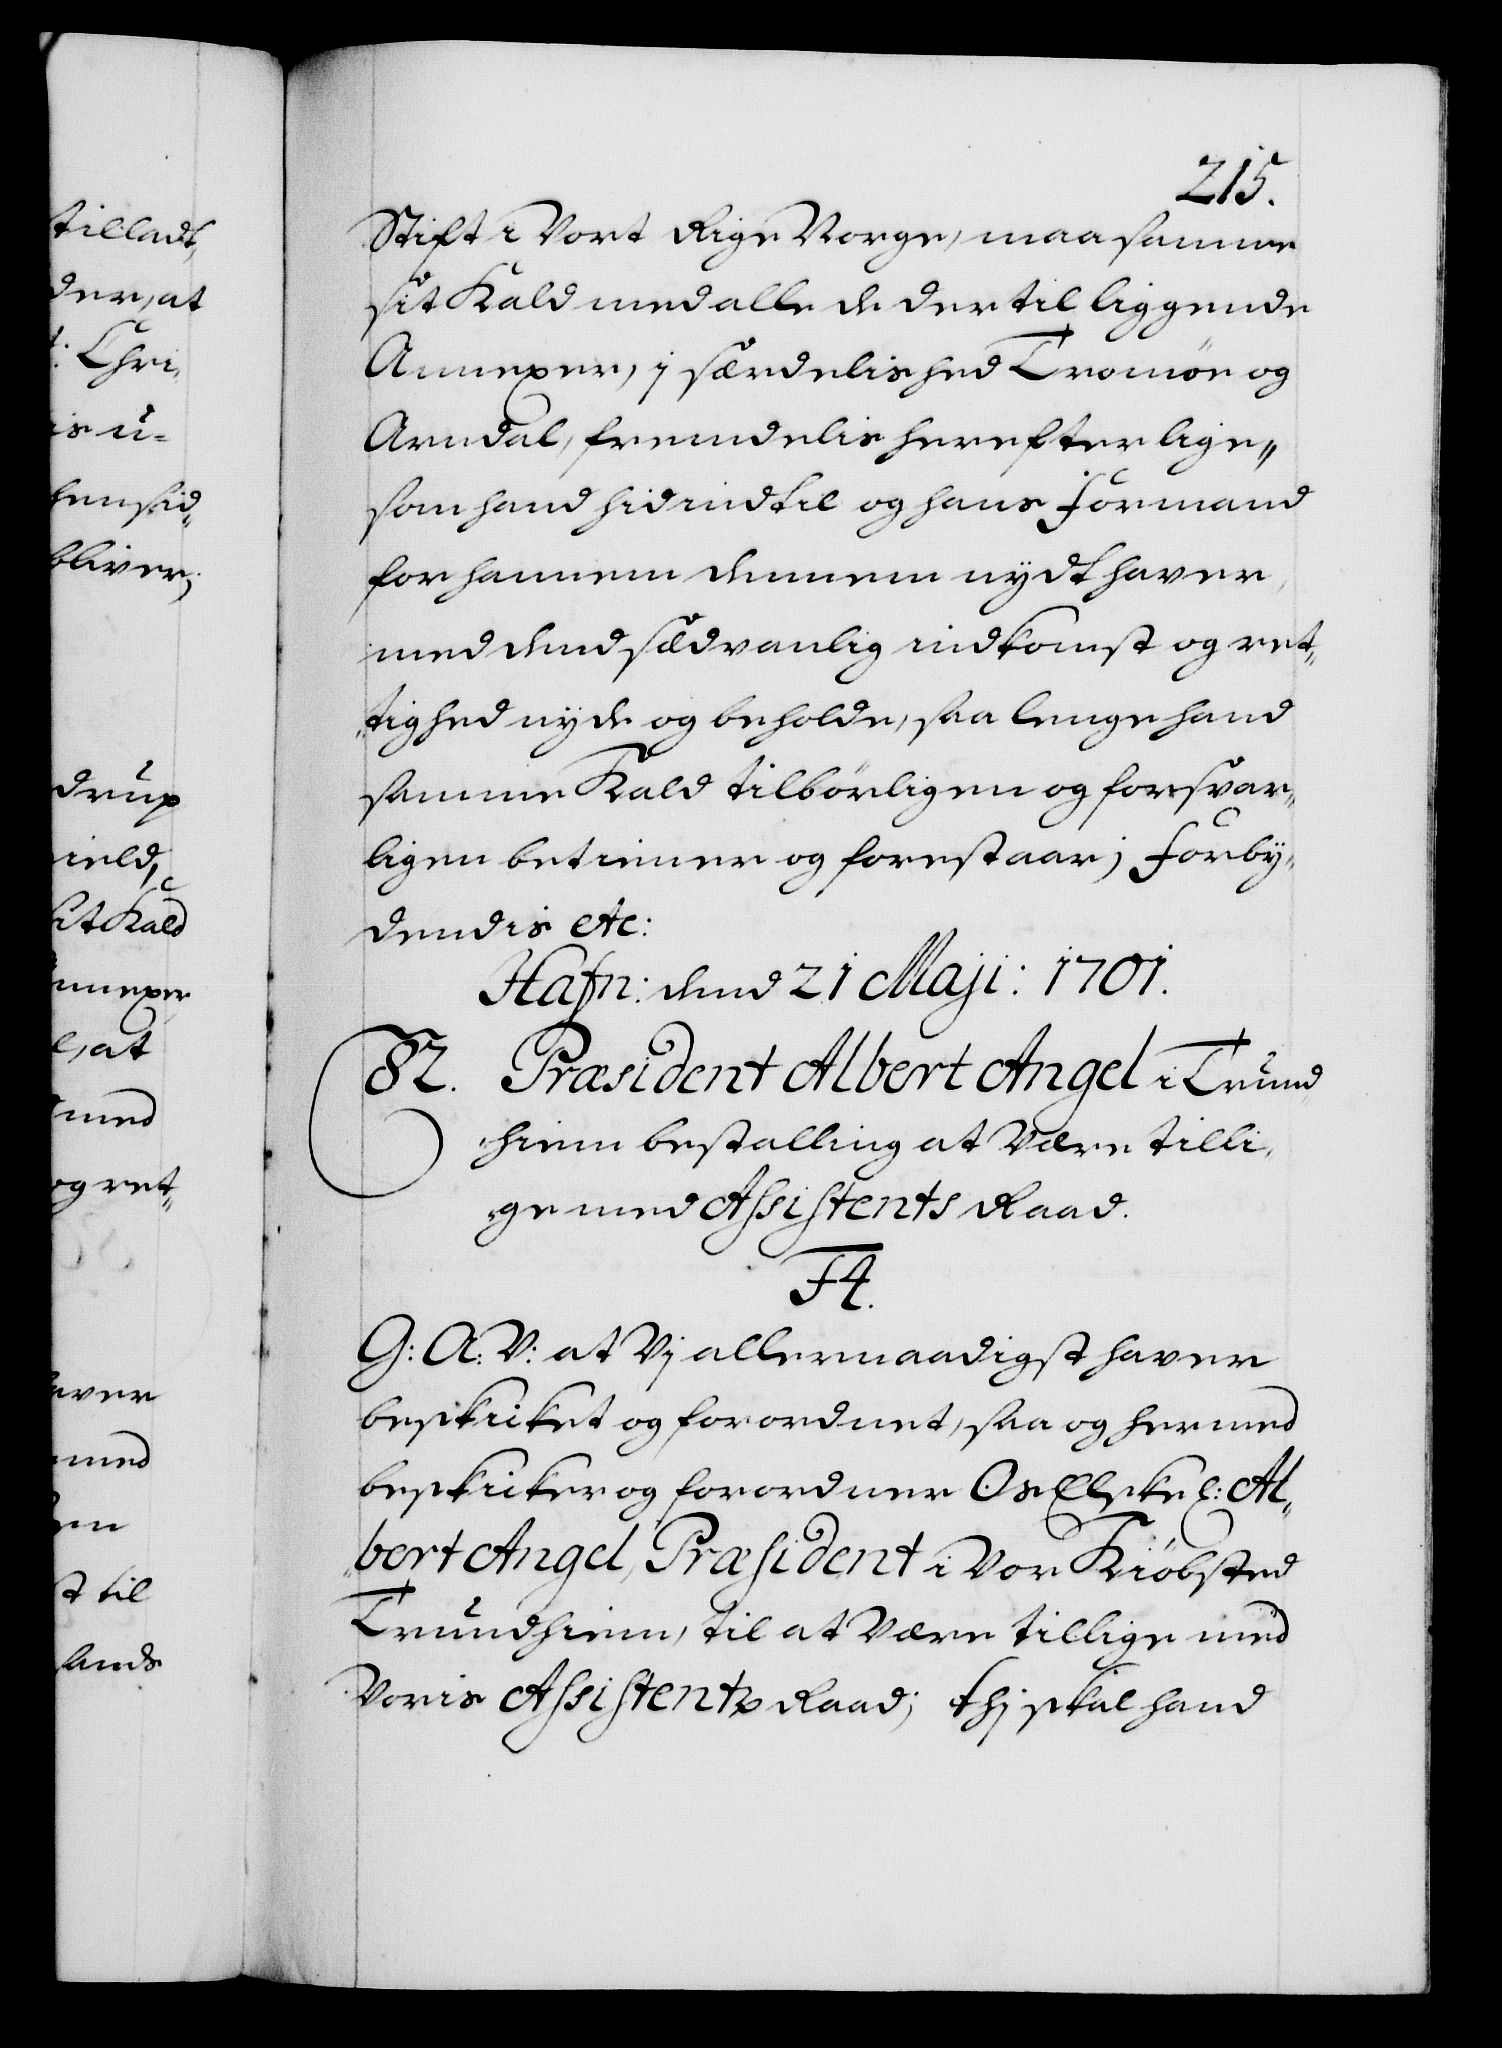 tilladt,
der, at
t: Chri,
is u-
hensid„
bliver;
drup
field,
sit Kald
Annexer
e, at
med
og ret„
haver
med
st til
hands
215.
Stift i Vort Rige Norge, maa samme
sit Kald med alle de dertil liggende
Annexer, i særdelished Tromöe og
Arndal, fremdelis herefter lige„
som hand hidindtil og hans Formand
for hannem dennem nÿdt haver,
med dend sædvanlig indkomst og ret„
„tighed nyde og beholde, saa lenge hand
samme Kald tilbörligen og forsvar„
ligen betiener og forestaar; Forby„
dendis etc:
Hafn: dend 21 Maji: 1701.
82. Præsident Albert Angel i Trund
hiem bestalling at Være tilli„
„ge med Assistents Raad.
F4.
G: A: V: at Vj allernaadigst haver
beskicket og forordnet, saa og hermed
beskicker og forordner Os Elskel: Al„
„bert Angel, Præsident i Vor Kiöbsted
Trundhiem, til at Være tillige med
Voris Assistentz Raad; thj skal hand